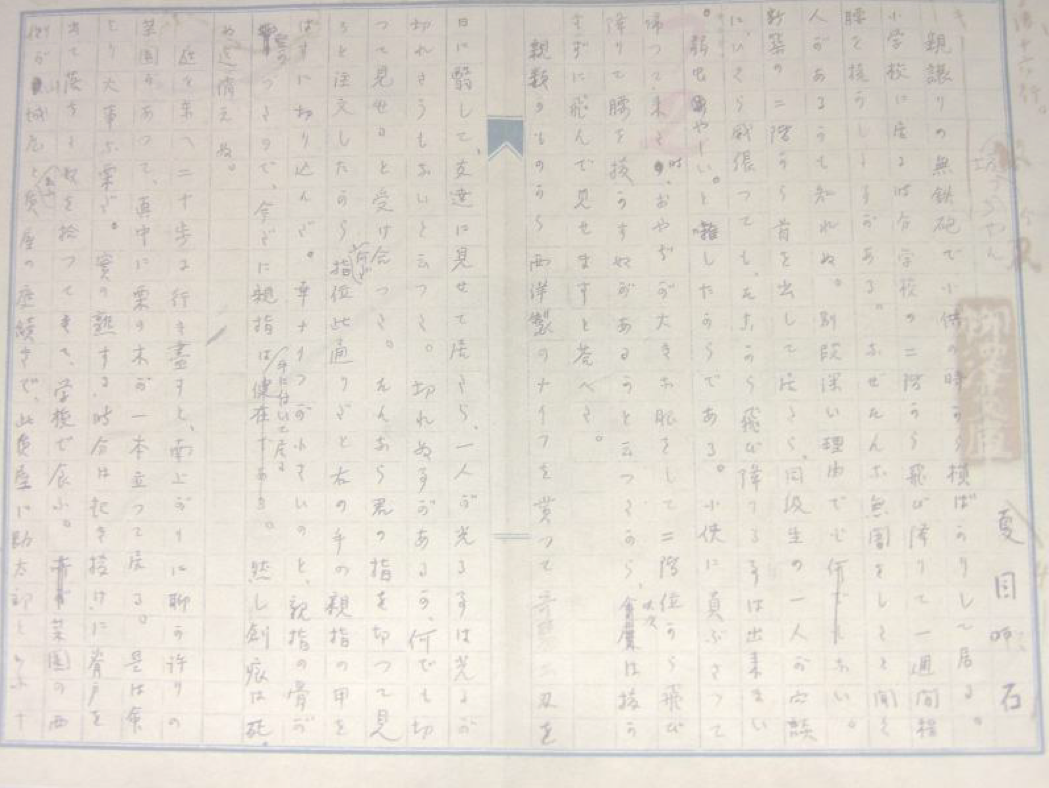 坊っちやん
夏目漱石
親譲りの無鉄砲で小供の時から損ばかりして居る。
小学校に居る時分学校の二階から飛び降りて一週間程
腰を抜かした事がある。なぜそんな無闇をしたと聞く
人があるかも知れぬ。別段深い理由でも何でもない。
新築の二階から首を出して居たら、同級生の一人が冗談
に、いくら威張つても、そこから飛び降りる事は出来まい
。弱虫やーい。と囃したからである。小使に負ぶさつて
帰つて来た時、おやぢが大きな眼をして二階位から飛び
降りて腰を抜かす奴があるかと云つたから、此次は抜か
さずに飛んで見せますと答へた。
親類のものから西洋製のナイフを貰つて奇麗な刃を
日に翳して、友達に見せて居たら、一人が光る事は光るが
切れさうもないと云つた。切れぬ事があるか、何でも切
つて見せると受け合つた。そんなら君の指を切つて見
ろと注文したから、何だ指位此通りだと右の手の親指の甲を
はすに切り込んだ。幸ナイフが小さいのと、親指の骨が
堅かつたので、今だに親指は手に付いて居る。然し創痕は死
ぬ迄消えぬ。
庭を東へ二十歩に行き尽すと、南上がりに聊か許りの
菜園があつて、真中に栗の木が一本立つて居る。是は命
より大事な栗だ。実の熟する時分は起き抜けに脊戸を
出て落ちた奴を拾つてきて、学校で食ふ。菜園の西
側が山城屋と云ふ質屋の庭続きで、此質屋に勘太郎といふ十